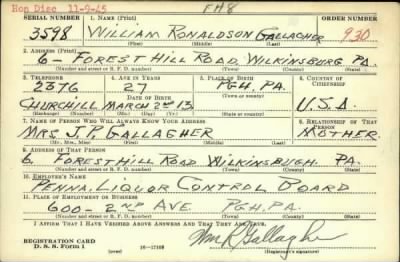 Hon Disc 11-9-45 FH8
SERIAL NUMBER 1. NAME (Print) ORDER NUMBER
3598 WILLIAM RONALDSON GALLAGHER 930
(First) (Middle) (Last)
2. ADDRESS (Print)
6- FOREST HILL ROAD, WILKINSBURG PA.
(Number and street or R. F. D. number) (Town) (County) (State)
3. TELEPHONE 4. AGE IN YEARS 5. PLACE OF BIRTH 6. COUNTRY OF CITIZENSHIP
2376 27 PGH. PA.
DATE OF BIRTH (Town or county)
CHURCHILL MARCH 2nd 13 U.S.A.
(Exchange) (Number) (Mo.) (Day) (Yr.) (State or country)
7. NAME OF PERSON WHO WILL ALWAYS KNOW YOUR ADDRESS 8. RELATIONSHIP OF THAT PERSON
MRS J. P. GALLAGHER MOTHER
(Mr., Mrs., Miss) (First) (Middle) (Last)
9. ADDRESS OF THAT PERSON
6 FOREST HILL ROAD WILKINSBUGH. PA.
(Number and street or R. F. D. number) (Town) (County) (State)
10. EMPLOYER'S NAME
PENNA. LIQUOR CONTROL BOARD
11. PLACE OF EMPLOYMENT OR BUSINESS
600- 2ND AVE PGH, PA.
(Number and street or R. F. D. number) (Town) (County) (State)
I AFFIRM THAT I HAVE VERIFIED ABOVE ANSWERS AND THAT THEY ARE TRUE.
REGISTRATION CARD
D. S. S. Form 1 16-17105 Wm R Gallagher
(Registrant's signature)